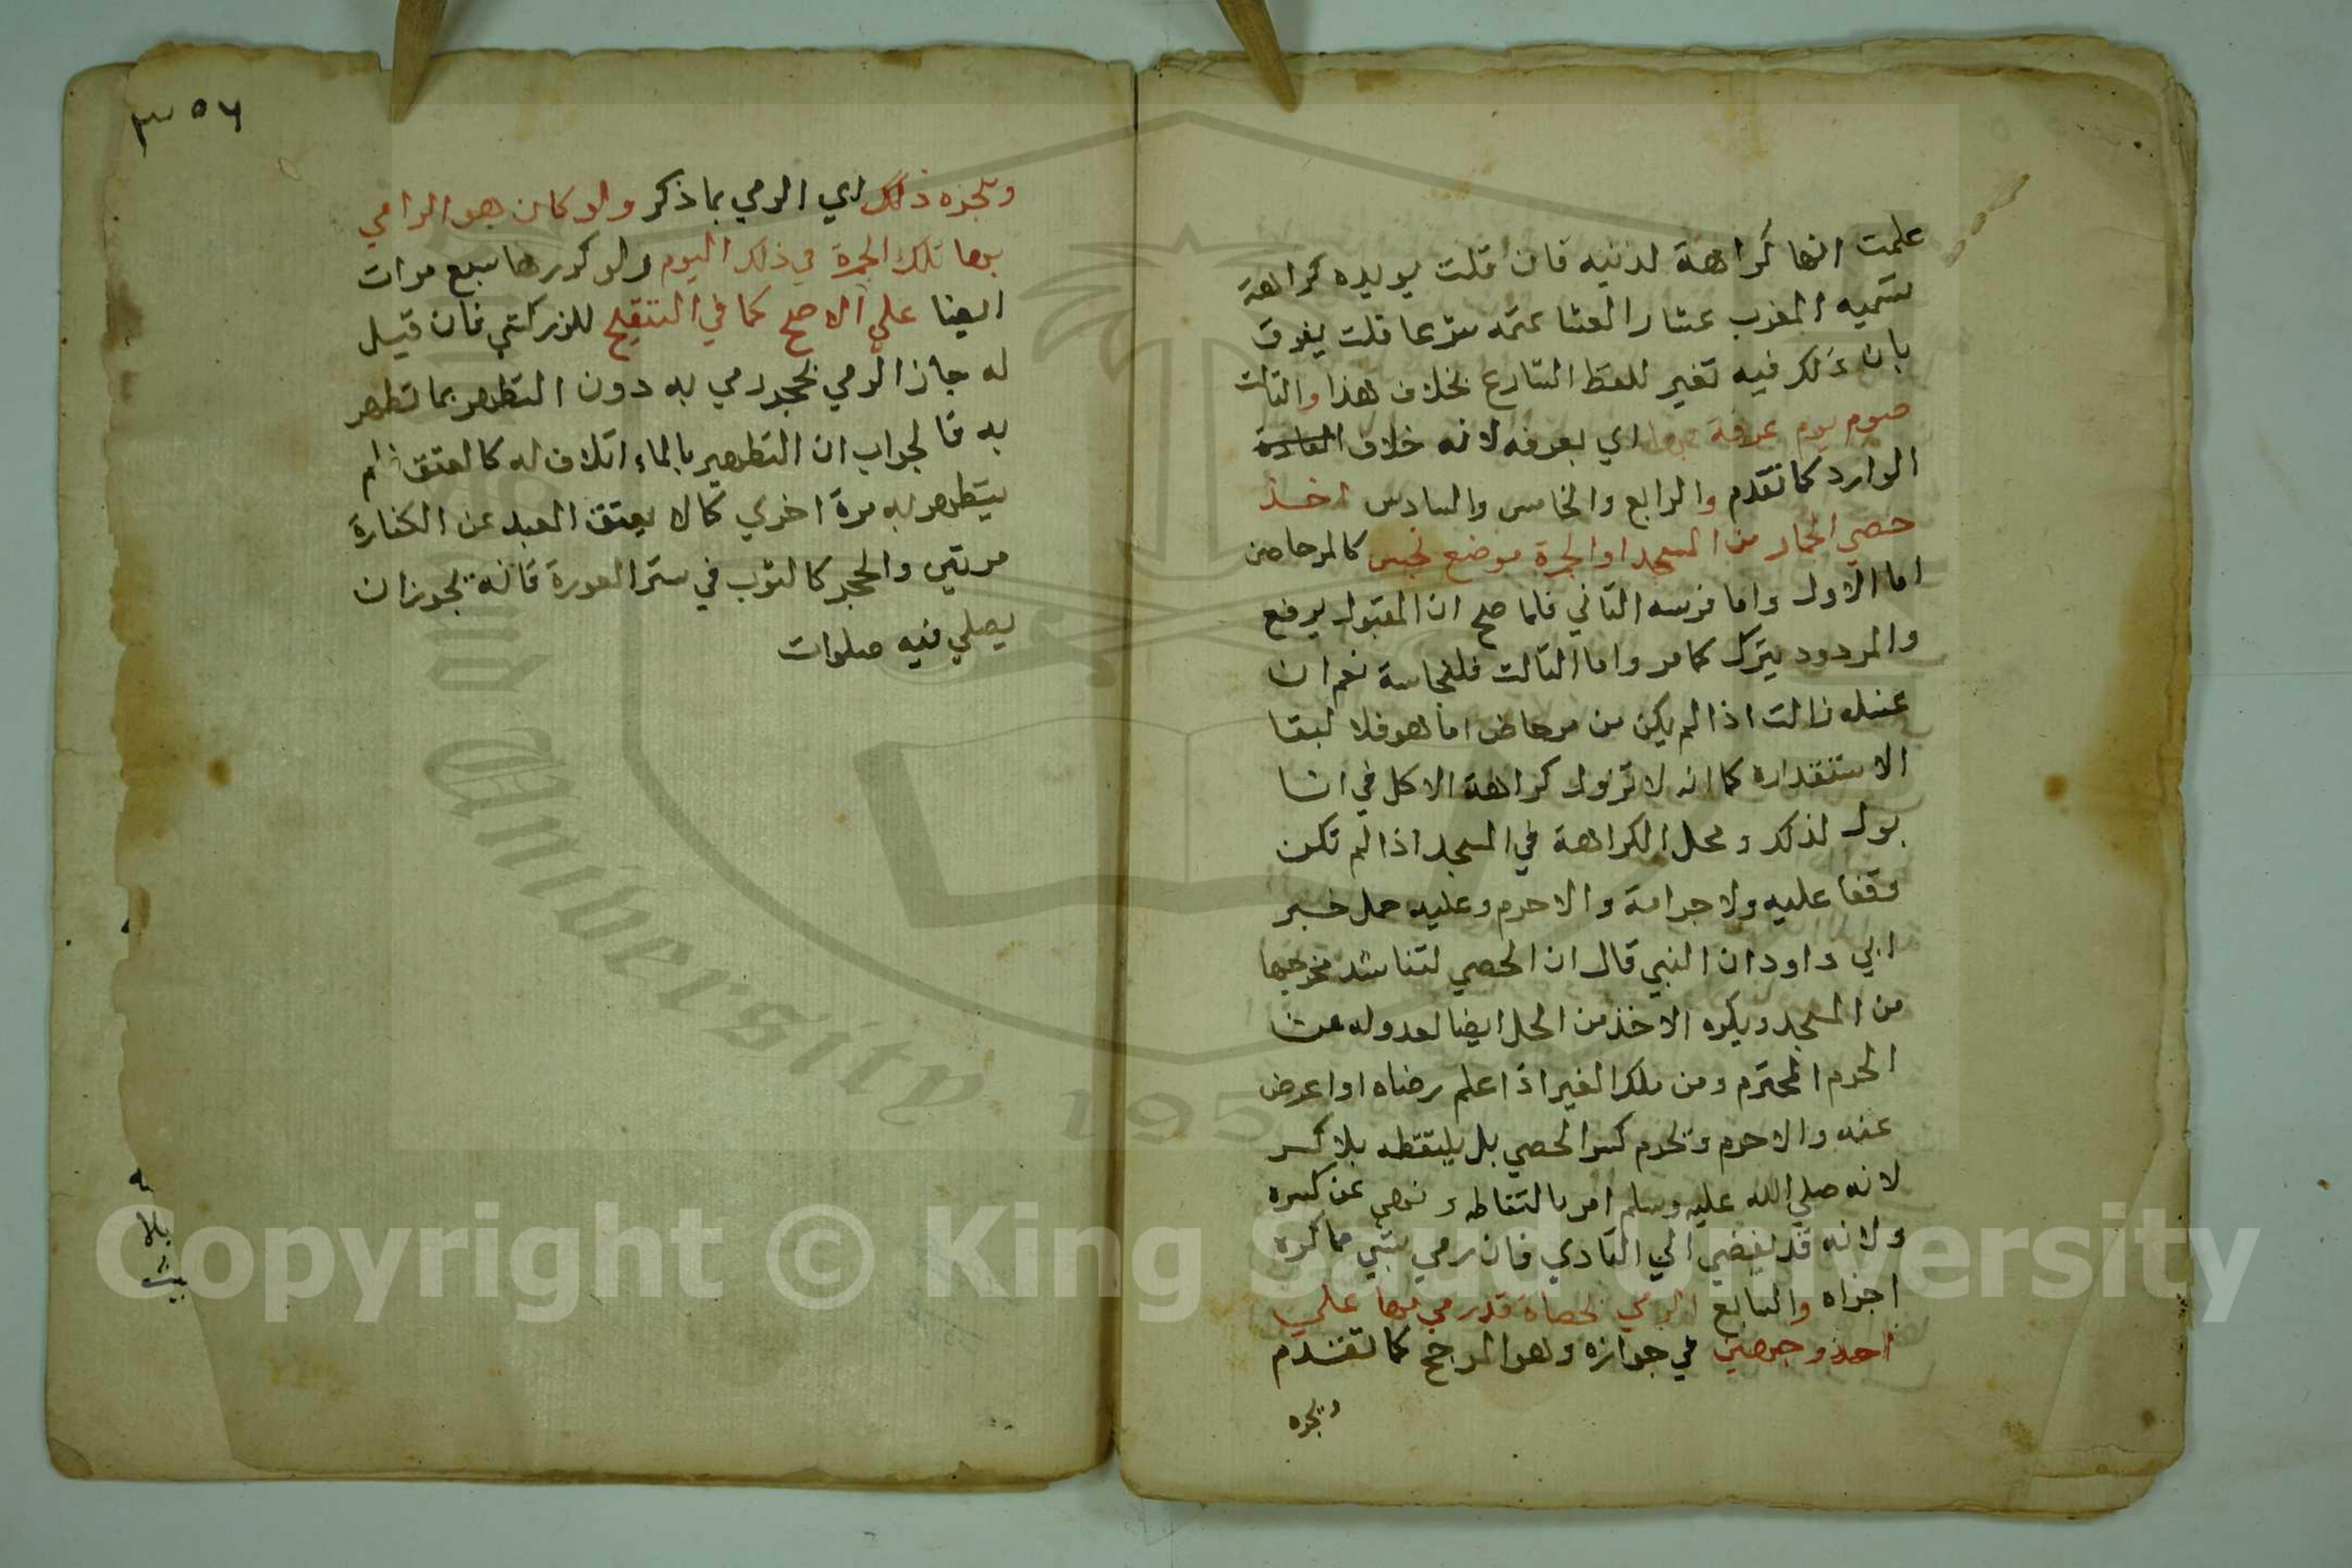 علمت انها كراهة لذنيه فان قلت يويده كراهة
تسميه المغرب عشا والعشا عتمه شرعا قلت يفرق
بان ذلك فيه تغير للفظ الشارع بخلاف هذا والثالث
صوم يوم عرفة بها اي بعرفه لانه خلاف
الوارد كما تقدم والرابع والخامس والسادس اخذ
حصي الجمار من المسجد او الجمرة موضع نجس كالمرحاض
اما الاول واما الثاني فلما صح ان المقبول يرفع
والمردود يترك كما مر واما الثالث فللنجاسة نعم ان
غسله زالت اذا لم يكن من مرحاض اما هو فلا لبقا
الاستقداره كما انه لا تزول كراهة الاكل في انا
بول لذلك ومحل الكراهة في المسجد اذا لم تكن
وقفا عليه ولا جرامة والاحرم وعليه حمل خبر
ابي داود ان النبي قال ان الحصي لتناشد مخرجها
من المسجد ويكره الاخذ من الحل ايضا لعدوله عن
الحرم المحترم ومن ملك الغير اذا علم رضاه او اعرض
عنه والاحرم ويحرم كسر الحصي بل يلتقطه بلا كسر
لانه صلي الله عليه وسلم امر بالتقاطه ونهي عن كسره
ولانه قد يفضي الي التاذي فان رمي بشي مما كره
اجزاه والسابع الرمي بحصاة قد رمي بها علي
احد وجهين في جوازه وهو المرجح كما تقدم
ويجزه
٣٥٦
ويجزه ذلك اي الرمي بما ذكر ولو كان هو الرامي
بها تلك الجمرة في ذلك اليوم ولو كررها سبع مرات
ايضا علي الاصح كما في التنقيح للزركشي فان قيل
له جاز الرمي بحجر رمي به دون التطهر بما تطهر
به فالجواب ان التطهير بالماء اتلاف له كالعتق فلم
يتطهر به مرة اخري كما لا يعتق العبد عن الكفارة
مرتين والحجر كالثوب في ستر العورة فانه يجوز ان
يصلي فيه صلوات